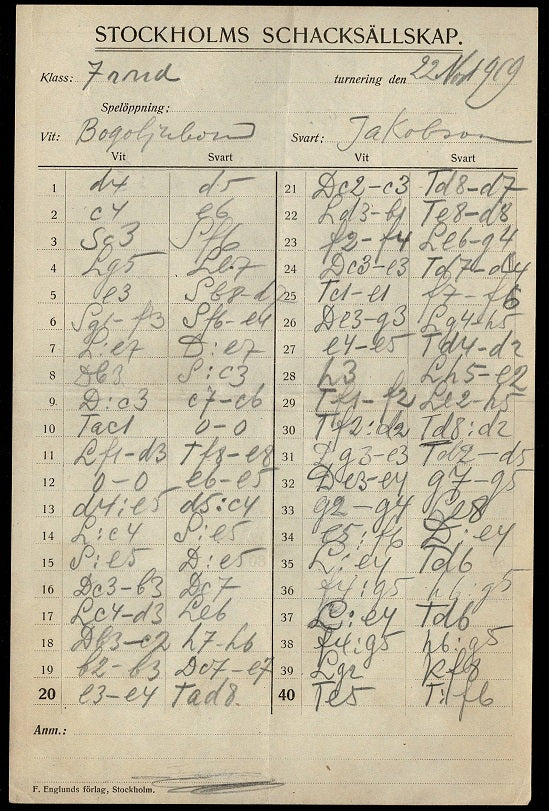 STOCKHOLMS SCHACKSÄLLSKAP.
Klass: turnering den 22 Nov 1919
Spelöppning:
Vit: Bogoljubow Svart: Jakobson
Vit Svart
1 d4 d5
2 c4 e6
3 Sc3 Sf6
4 Lg5 Le7
5 e3 Sb8-d7
6 Sg1-f3 Sf6-e4
7 L:e7 D:e7
8 Db3 S:c3
9 D:c3 c7-c6
10 Tac1 0-0
11 Lf1-d3 Tf8-e8
12 0-0 e6-e5
13 d4:e5 d5:c4
14 L:c4 S:e5
15 S:e5 D:e5
16 Dc3-b3 Dc7
17 Lc4-d3 Le6
18 Db3-c2 h7-h6
19 b2-b3 Dc7-e7
20 e3-e4 Tad8.
Vit Svart
21 Dc2-c3 Td8-d7
22 Ld3-b1 Te8-d8
23 f2-f4 Le6-g4
24 Dc3-e3 Td7-d4
25 Tc1-e1 f7-f6
26 De3-g3 Lg4-h5
27 e4-e5 Td4-d2
28 h3 Lh5-e2
29 Tf1-f2 Le2-h5
30 Tf2:d2 Td8:d2
31 Dg3-e3 Td2-d5
32 De3-e4 g7-g5
33 g2-g4 Le8
34 e5:f6 D:e4
35 L:e4 Td6
36 f4:g5 h6:g5
37 L:e4 Td6
38 f4:g5 h6:g5
39 Lg2 Kf8
40 Te5 T:f6
Anm.:
F. Englunds förlag, Stockholm.